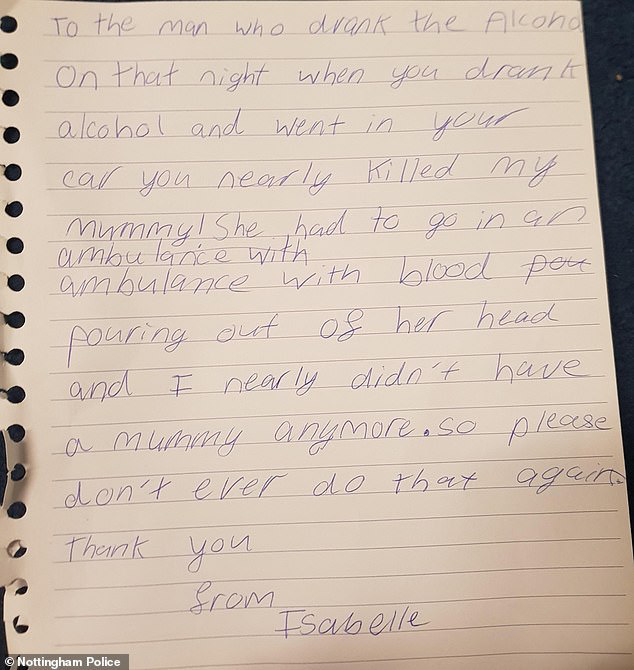 To the man who drank the Alcohol
On that night when you drank
alcohol and went in your
car you nearly killed my
mummy! She had to go in an
ambulance with
ambulance with blood pou
pouring out of her head
and I nearly didn't have
a mummy anymore. so please
don't ever do that again.
Thank you
from
Isabelle
© Nottingham Police